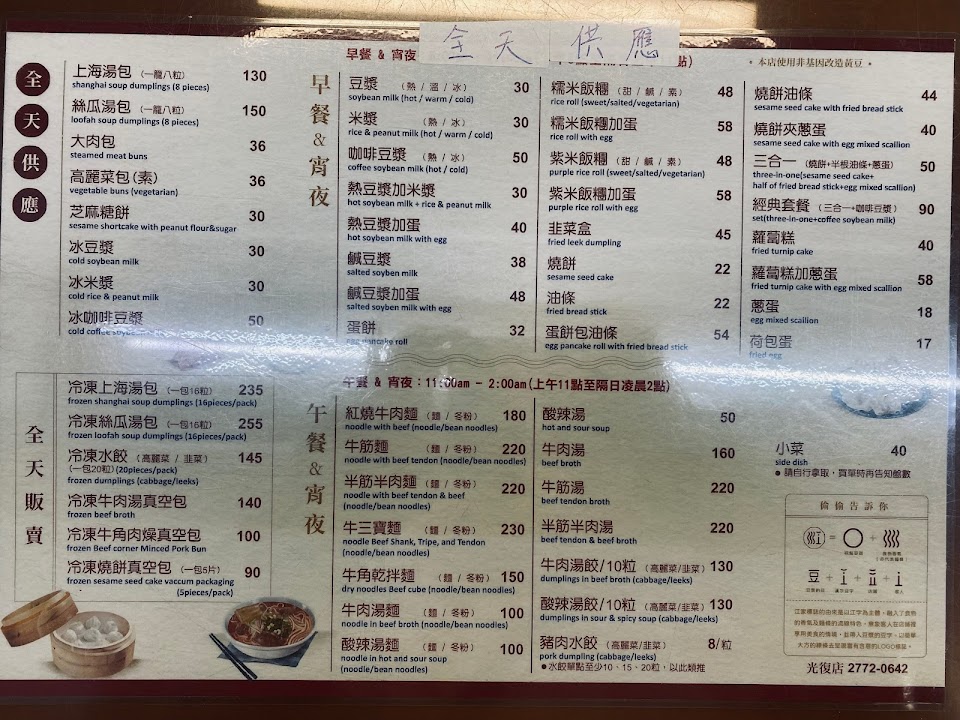 全天供應
早餐 & 宵夜
點)
• 本店使用非基因改造黃豆 •
全天供應
上海湯包 (一籠八粒) 130
shanghai soup dumplings (8 pieces)
絲瓜湯包 (一籠八粒) 150
loofah soup dumplings (8 pieces)
大肉包 36
steamed meat buns
高麗菜包(素) 36
vegetable buns (vegetarian)
芝麻糖餅 30
sesame shortcake with peanut flour&sugar
冰豆漿 30
cold soybean milk
冰米漿 30
cold rice & peanut milk
冰咖啡豆漿 50
cold coffee soybean milk
早餐&宵夜
豆漿 (熱 / 溫 / 冰) 30
soybean milk (hot / warm / cold)
米漿 (熱 / 冰) 30
rice & peanut milk (hot / warm / cold)
咖啡豆漿 (熱 / 冰) 50
coffee soybean milk (hot / cold)
熱豆漿加米漿 30
hot soybean milk + rice & peanut milk
熱豆漿加蛋 40
hot soybean milk with egg
鹹豆漿 38
salted soyben milk
鹹豆漿加蛋 48
salted soyben milk with egg
蛋餅 32
egg pancake roll
糯米飯糰 (甜 / 鹹 / 素) 48
rice roll (sweet/salted/vegetarian)
糯米飯糰加蛋 58
rice roll with egg
紫米飯糰 (甜 / 鹹 / 素) 48
purple rice roll (sweet/salted/vegetarian)
紫米飯糰加蛋 58
purple rice roll with egg
韭菜盒 45
fried leek dumpling
燒餅 22
sesame seed cake
油條 22
fried bread stick
蛋餅包油條 54
egg pancake roll with fried bread stick
燒餅油條 44
sesame seed cake with fried bread stick
燒餅夾蔥蛋 40
sesame seed cake with egg mixed scallion
三合一 (燒餅+半根油條+蔥蛋) 50
three-in-one(sesame seed cake+
half of fried bread stick+egg mixed scallion)
經典套餐 (三合一+咖啡豆漿) 90
set(three-in-one+coffee soybean milk)
蘿蔔糕 40
fried turnip cake
蘿蔔糕加蔥蛋 58
fried turnip cake with egg mixed scallion
蔥蛋 18
egg mixed scallion
荷包蛋 17
fried egg
全天販賣
冷凍上海湯包 (一包16粒) 235
frozen shanghai soup dumplings (16pieces/pack)
冷凍絲瓜湯包 (一包16粒) 255
frozen loofah soup dumplings (16pieces/pack)
冷凍水餃 (高麗菜 / 韭菜) 145
(一包20粒)(20pieces/pack)
frozen dumplings (cabbage/leeks)
冷凍牛肉湯真空包 140
frozen beef broth
冷凍牛角肉燥真空包 100
frozen Beef corner Minced Pork Bun
冷凍燒餅真空包 (一包5片) 90
frozen sesame seed cake vaccum packaging
(5pieces/pack)
午餐 & 宵夜：11:00am - 2:00am(上午11點至隔日凌晨2點)
午餐&宵夜
紅燒牛肉麵 (麵 / 冬粉) 180
noodle with beef (noodle/bean noodles)
牛筋麵 (麵 / 冬粉) 220
noodle with beef tendon (noodle/bean noodles)
半筋半肉麵 (麵 / 冬粉) 220
noodle with beef tendon & beef
(noodle/bean noodles)
牛三寶麵 (麵 / 冬粉) 230
noodle Beef Shank, Tripe, and Tendon
(noodle/bean noodles)
牛角乾拌麵 (麵 / 冬粉) 150
dry noodles Beef cube (noodle/bean noodles)
牛肉湯麵 (麵 / 冬粉) 100
noodle in beef broth (noodle/bean noodles)
酸辣湯麵 (麵 / 冬粉) 100
noodle in hot and sour soup
(noodle/bean noodles)
酸辣湯 50
hot and sour soup
牛肉湯 160
beef broth
牛筋湯 220
beef tendon broth
半筋半肉湯 220
beef tendon & beef broth
牛肉湯餃/10粒 (高麗菜/韭菜) 130
dumplings in beef broth (cabbage/leeks)
酸辣湯餃/10粒 (高麗菜/韭菜) 130
dumplings in sour & spicy soup (cabbage/leeks)
豬肉水餃 (高麗菜/韭菜) 8/粒
pork dumpling (cabbage/leeks)
●水餃單點至少10、15、20粒，以此類推
小菜 40
side dish
● 請自行拿取，買單時再告知盤數
偷偷告訴你
光復店 2772-0642